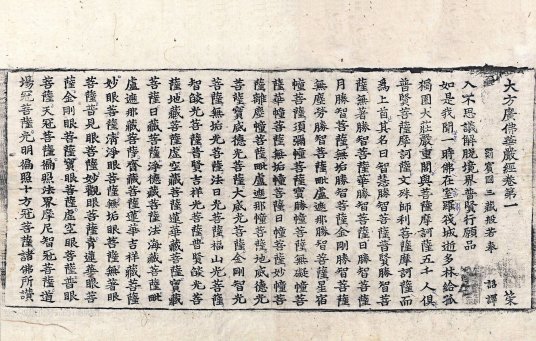 大方廣佛華嚴經卷第一
罽賓國三藏般若奉 詔譯
入不思議解脫境界普賢行願品
如是我聞一時佛在室羅筏城逝多林給孤
獨園大莊嚴重閣與菩薩摩訶薩五千人俱
普賢菩薩摩訶薩文殊師利菩薩摩訶薩而
爲上首其名曰智慧勝智菩薩普賢勝智菩
薩無著勝智菩薩華勝智菩薩日勝智菩薩
月勝智菩薩無垢勝智菩薩金剛勝智菩薩
無塵勞勝智菩薩毗盧遮那勝智菩薩星宿
幢菩薩須彌幢菩薩寶勝幢菩薩無礙幢菩
薩華幢菩薩無垢幢菩薩日幢菩薩妙幢菩
薩離塵幢菩薩毗盧遮那幢菩薩地威德光
菩薩寶威德光菩薩大威光菩薩金剛智光
菩薩無垢光菩薩法日光菩薩福山光菩薩
智燄光菩薩普賢吉祥光菩薩普賢燄光菩
薩地藏菩薩虛空藏菩薩蓮華藏菩薩寶藏
菩薩日藏菩薩淨德藏菩薩法海藏菩薩毗
盧遮那藏菩薩齎藏菩薩蓮華吉祥藏菩薩
妙眼菩薩清淨眼菩薩無垢眼菩薩無著眼
菩薩普見眼菩薩妙觀眼菩薩青蓮華眼菩
薩金剛眼菩薩寶眼菩薩虛空眼菩薩普眼
菩薩天冠菩薩徧照法界摩尼智冠菩薩道
場冠菩薩光明徧照十方冠菩薩諸佛所讚